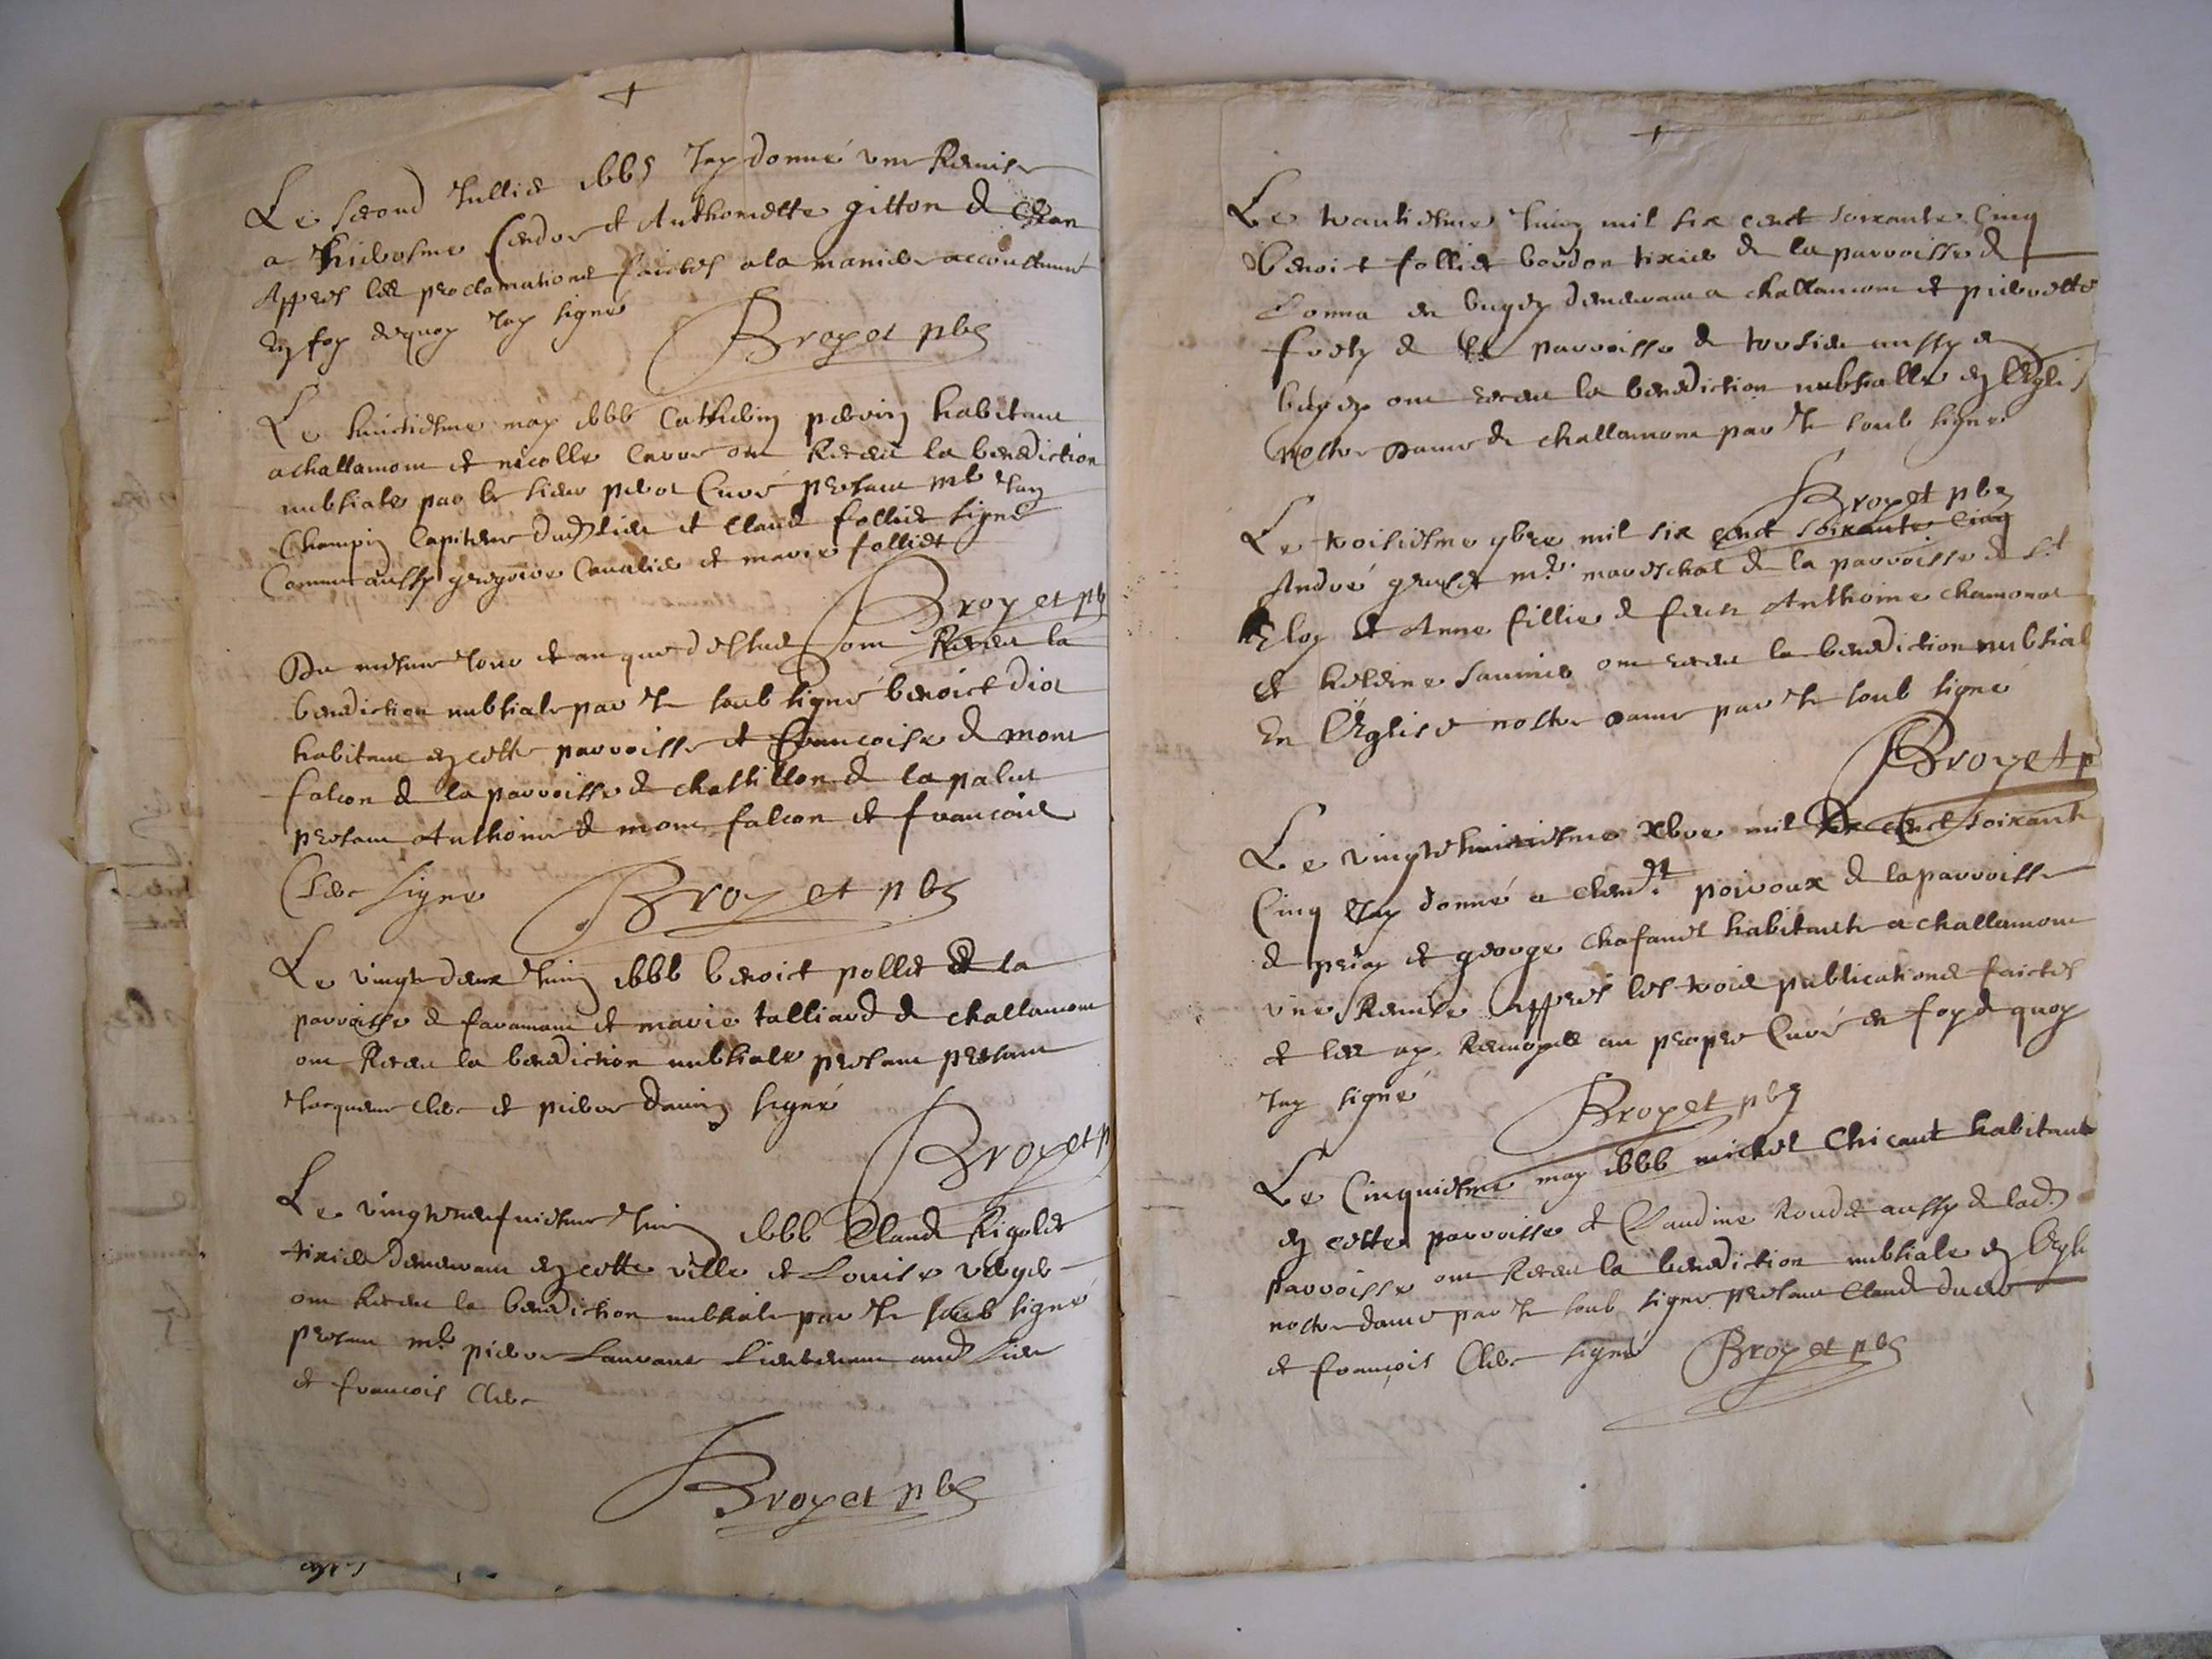 Le second Julliet 1665 J'ay donné une Remise
a Hierosme Cendre et Anthoinette gitton de
Appres les proclamations faictes a la maniere accoustumé
En foy dequoy J'ay signé
Broyet pbr
Le huictiesme may 1666 Catherin perrin habitant
a challamont et nicolle ont Receu la benediction
nubtiale par le sieur Curé present mre Jan
Champin Capitene dud lieu et Claude folliet signe
Comme aussy gregoire Cavalier et marie folliet
Broyet pb
Du mesme Jour et an que dessus ont Receu la
benediction nubtiale par Je soub signé benoict diot
habitant en cette parroisse et francoise de mont
falcon de la parroisse de chastillon de la palut
present Anthoine de mont falcon et francois
Clerc signe Broyet pbr
Le vingt deux Juin 1666 benoict pollet de la
parroisse de faramans et marie talliard de challamont
ont Receu la benediction nubtiale present present
Jacquem clerc et pierre signé
Broyet p
Le vingt Juin 1666 Claude Rigolet
tixier demeurant en cette ville et Louise verger
ont Receu la benediction nubtiale par Je soub signé
present mre pierre Laurans Lieutenant aud Lieu
et francois Clerc
Broyet pbr
Le trantiesme Juing mil six cent soixante Cinq
benoit folliet bourdon tixier de la parroisse de
Conna en bugey demeurant a challamont et pierrette
de parroisse de torsieu aussy en
bugey ont receu la benediction nubtialle en l'Egli
nostre Dame de challamont par Je soub signe
Broyet pbr
Le troisiesme 9bre mil six cent soixante Cinq
André mre mareschal de la parroisse de St
Eloy et Anne fillie de feuz Anthoine chamonot
et helene saunier ont receu la benediction nubtial
En l'Eglise nostre dame par Je soub signé
Broyet p
Le vingt huictiesme Xbre mil six cent soixante
Cinq J'ay donné a poivoux de la parroisse
de priay et george habitante a challamont
une Remise Appres les trois publications faictes
et les ay Renvoyez au propre Curé en foy de quoy
J'ay signé
Broyet pbr
Le Cinquiesme may 1666 michel Chicaut habitant
en cette parroisse et Claudine Roudet aussy de lad
parroisse ont Receu la benediction nubtiale en l'Egli
nostre dame par Je soub signe present Claude
et françois Clerc signé Broyet pbr